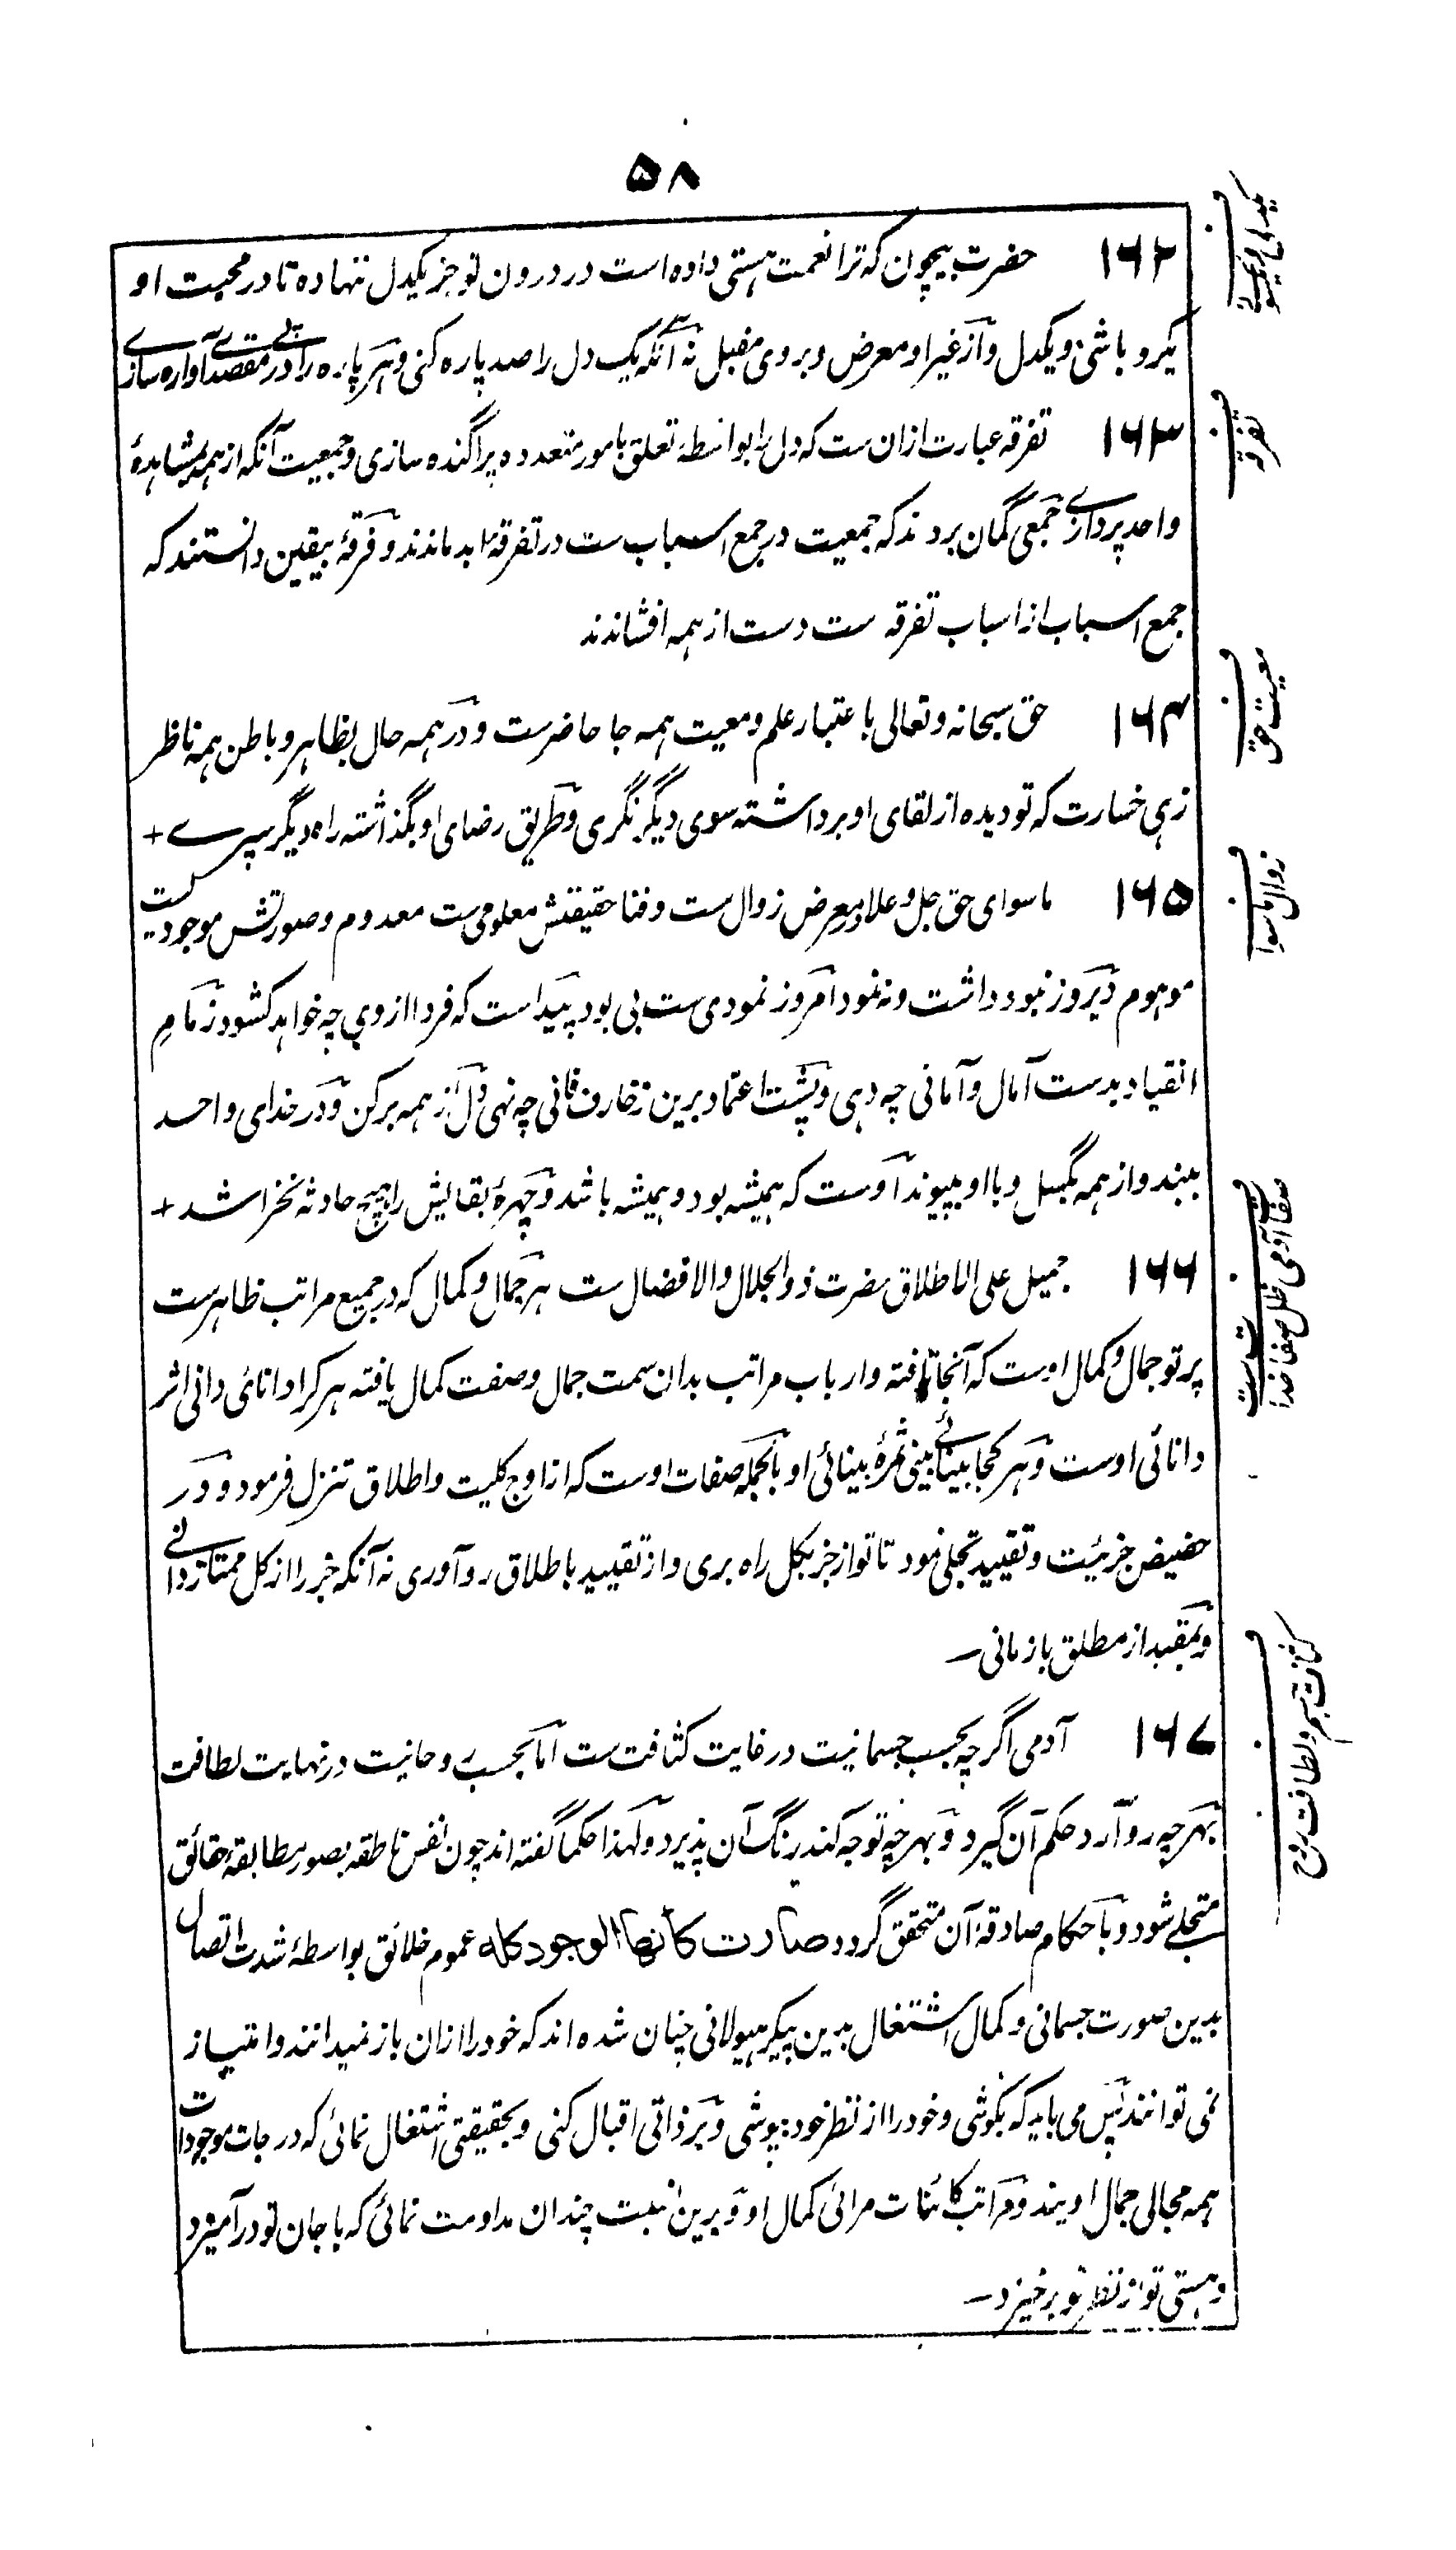 ۵۸
۱۶۲ حضرت بیچون که ترا نعمت هستی داده است در درون تو جز یکدل ننهاده تا در محبت او
یکرو باشی و یکدل و از غیر او معرض و بر وی مقبل نه آنکه یک دل را صد پاره کنی و هر پاره را در پی مقصدے آواره سازے
۱۶۳ تفرقه عبارت از ان ست که دل را بواسطهٔ تعلق بامور متعدده پراگنده سازی و جمعیت آنکه از همه بمشاهدهٔ
واحد پردازے جمعی گمان بردند که جمعیت در جمع اسباب ست در تفرقهٔ ابد ماندند و فرقهٔ بیقین دانستند که
جمع اسباب از اسباب تفرقه ست دست از همه افشاندند
۱۶۴ حق سبحانه و تعالی باعتبار علم و معیت همه جا حاضرست و در همه حال بظاهر و باطن همه ناظر
زهی خسارت که تو دیده از لقای او برداشته سوی دیگر نگری و طریق رضای او بگذاشته راه دیگر سپرے +
۱۶۵ ماسوای حق جل و علا در معرض زوال ست و فنا حقیقتش معلومی ست معدوم و صورتش موجودیست
موهوم دیروز نه بود داشت و نه نمود امروز نمودی ست بی بود پیداست که فردا از وی چه خواهد کشود زمام
انقیاد بدست آمال و آمانی چه دهی و پشت اعتماد برین زخارف فانی چه نهی دل از همه برکن و در خدای واحد
ببند و از همه بگسل و با او بپیوند اوست که همیشه بود و همیشه باشد و چهرهٔ بقایش را هیچ حادثه نخراشد +
۱۶۶ جمیل علی الاطلاق حضرت ذوالجلال والافضال ست هر جمال و کمال که در جمیع مراتب ظاهرست
پرتو جمال و کمال اوست که آنجا تافته و ارباب مراتب بدان سمت جمال و صفت کمال یافته هر کرا دانائی دانی اثر
دانائی اوست و هر کجا بینائے بینی ثمرهٔ بینائی او بالجمله صفات اوست که از اوج کلیت و اطلاق تنزل فرموده و در
حضیض جزئیت و تقیید تجلی نموده تا تو از جز بکل راه بری و از تقیید باطلاق رو آوری نه آنکه جز را از کل ممتاز دانے
و بمقید از مطلق بازمانی—
۱۶۷ آدمی اگرچه بحسب جسمانیت در غایت کثافت ست اما بحسب روحانیت در نهایت لطافت
بهرچه رو آرد حکم آن گیرد و بهرچه توجه کند رنگ آن پذیرد و لهذا حکما گفته اند چون نفس ناطقه بصور مطابقهٔ حقائق
متجلے شود و باحکام صادقهٔ آن متحقق گردد صارت کأنها الوجود کله عموم خلائق بواسطهٔ شدت اتصال
بدین صورت جسمانی و کمال اشتغال بدین پیکر هیولانی چنان شده اند که خود را ازان باز نمیدانند و امتیاز
نمی توانند پس می باید که بکوشی و خود را از نظر خود بپوشی و بر ذاتی اقبال کنی و بحقیقتی اشتغال نمائی که درجات موجودات
همه مجالی جمال اویند و مراتب کائنات مرائی کمال او و برین نسبت چندان مداومت نمائی که با جان تو در آمیزد
و هستی تو از نظر تو برخیزد—
تفرقه
معیت حق
زوال ماسوا
صفات آدمی ظل صفات خداست
کثافت جسم و لطافت روح